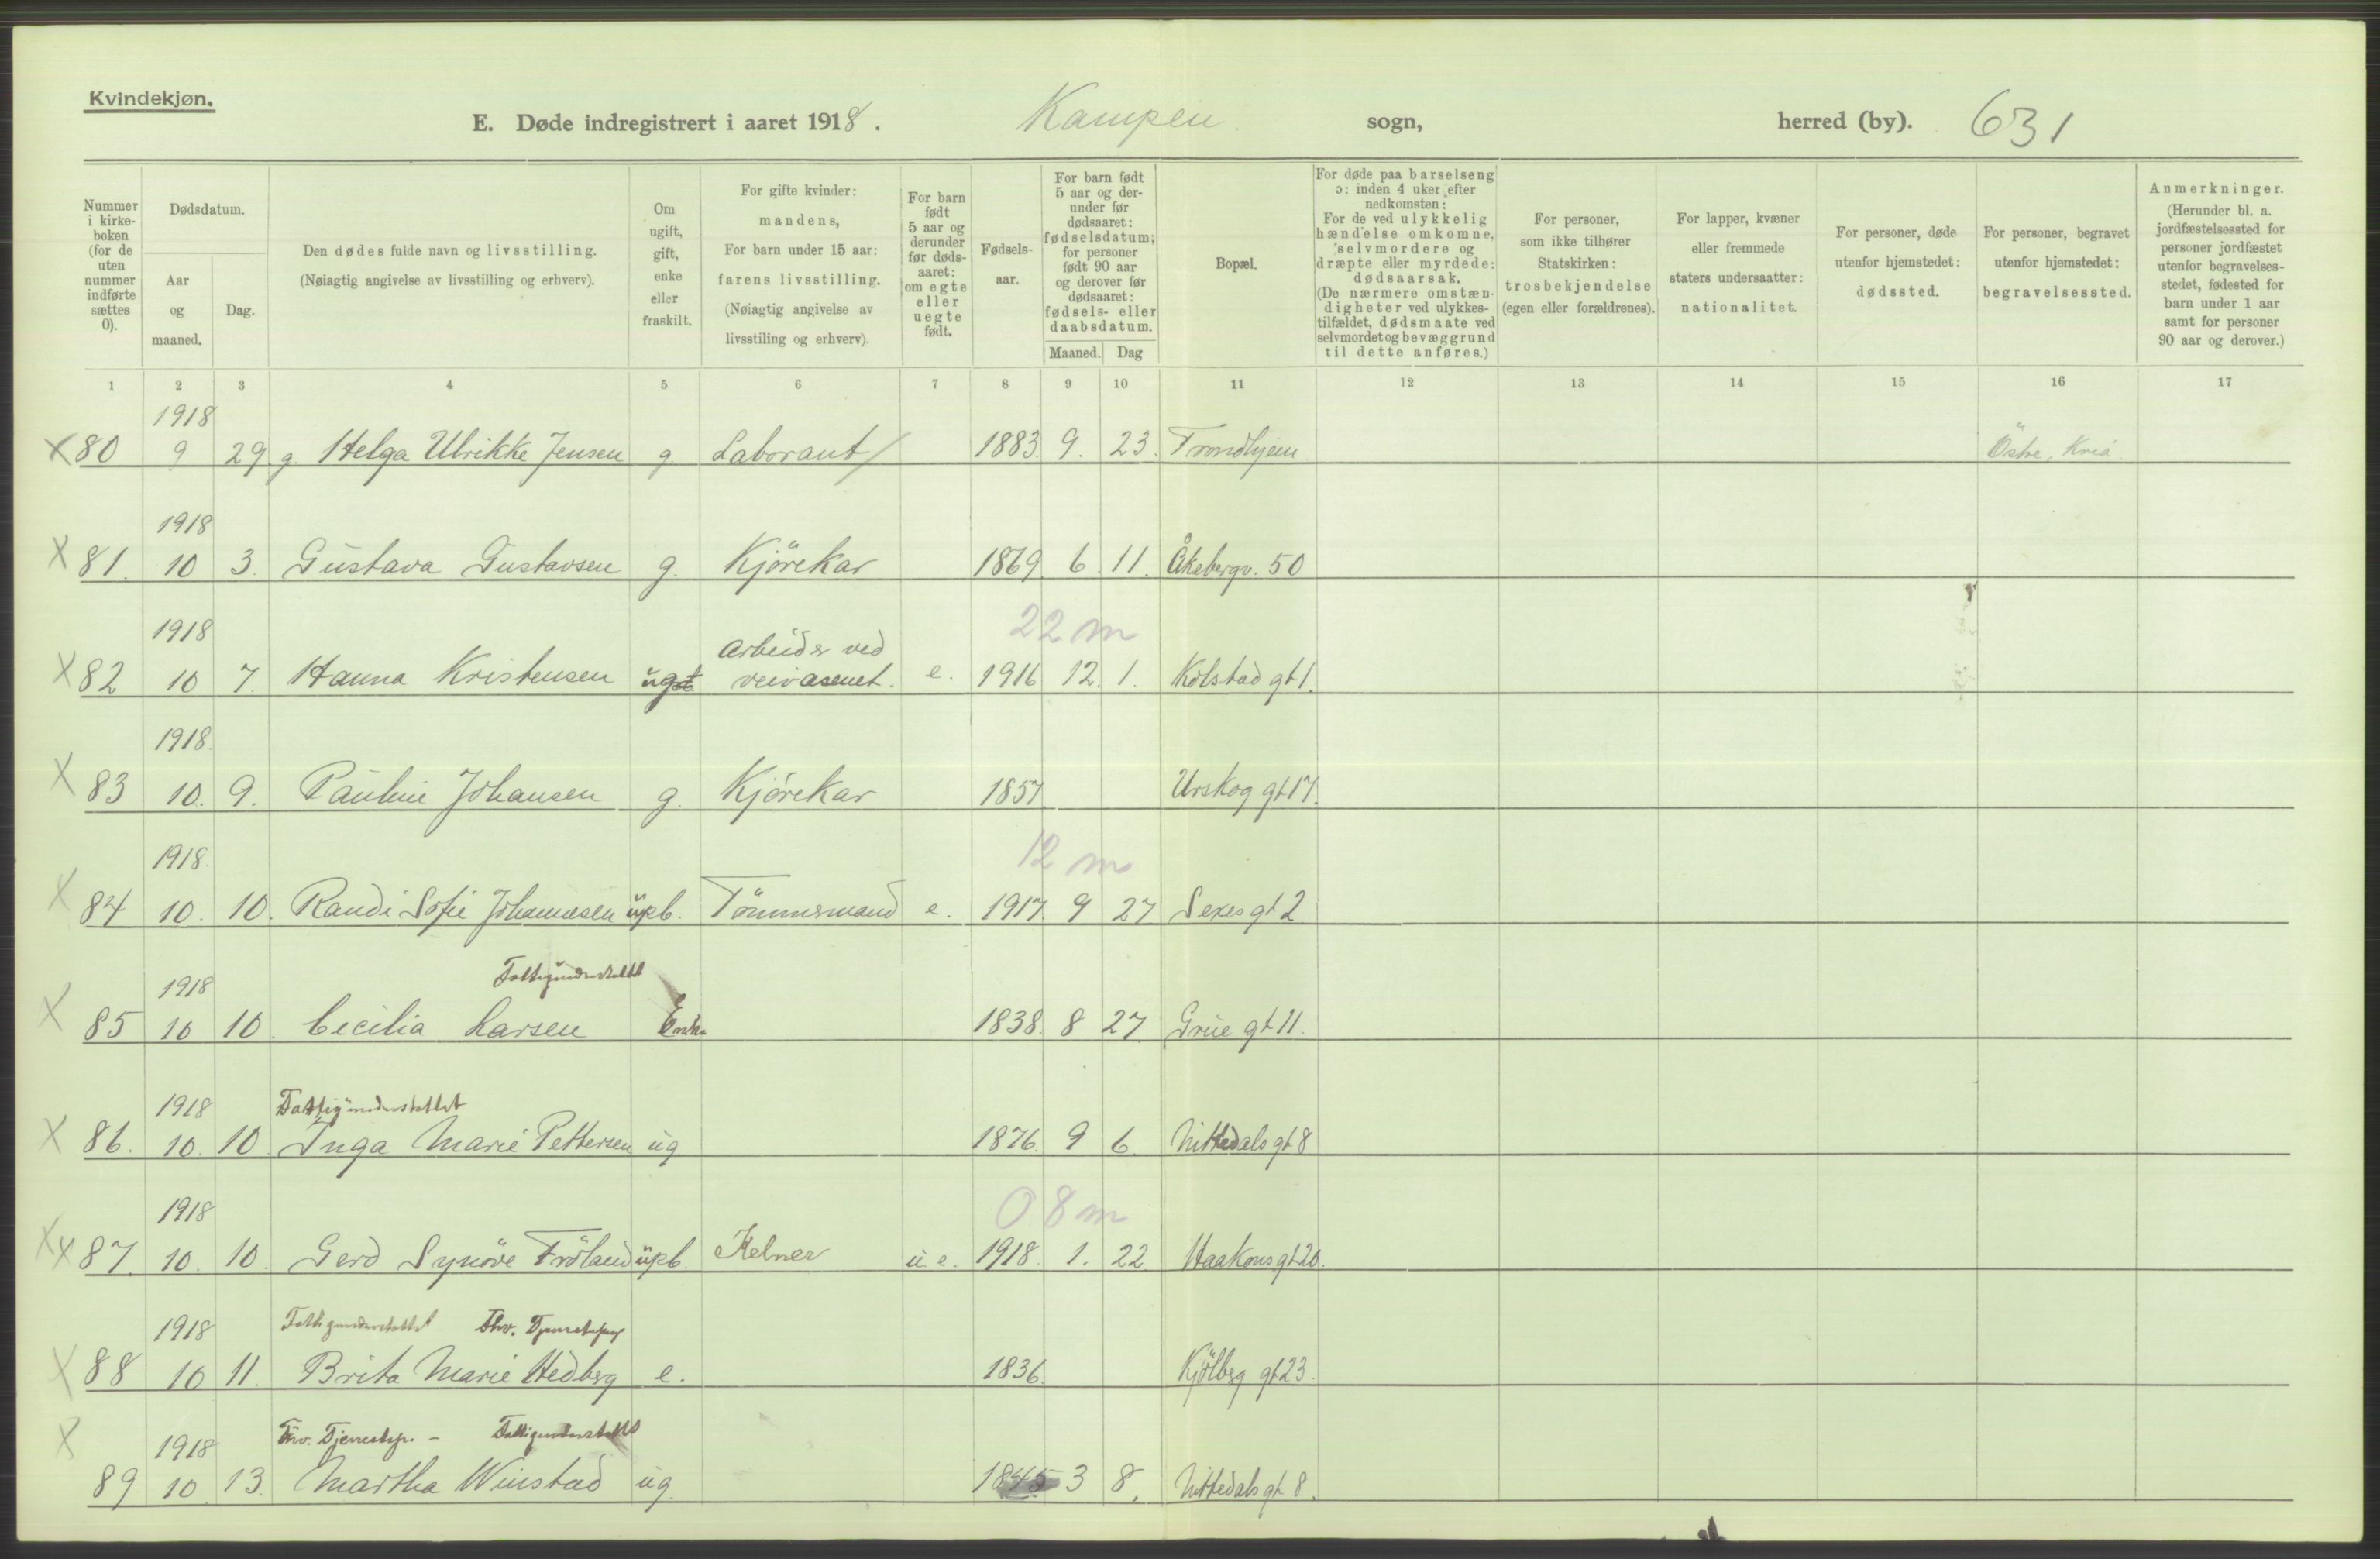 Kvindekjøn.
E. Døde indregistrert i aaret 1918. Kampen sogn, herred (by). 631
Nummer i kirke-boken (for de uten nummer indførte sættes 0).
Dødsdatum.
Aar og maaned.
Dag.
Den dødes fulde navn og livsstilling.
(Nøiagtig angivelse av livsstilling og erhverv).
Om ugift, gift, enke eller fraskilt.
For gifte kvinder: mandens,
For barn under 15 aar: farens livsstilling.
(Nøiagtig angivelse av livsstiling og erhverv).
For barn født 5 aar og derunder før døds-aaret: om egte eller uegte født.
Fødsels-aar.
For barn født 5 aar og der-under før dødsaaret: fødselsdatum; for personer født 90 aar og derover før dødsaaret: fødsels- eller daabsdatum.
Maaned. Dag
Bopæl.
For døde paa barselseng ɔ: inden 4 uker efter nedkomsten:
For de ved ulykkelig hændelse omkomne, selvmordere og dræpte eller myrdede: dødsaarsak.
(De nærmere omstæn-digheter ved ulykkes-tilfældet, dødsmaate ved selvmordet og bevæggrund til dette anføres.)
For personer, som ikke tilhører Statskirken: trosbekjendelse (egen eller forældrenes).
For lapper, kvæner eller fremmede staters undersaatter: nationalitet.
For personer, døde utenfor hjemstedet: dødssted.
For personer, begravet utenfor hjemstedet: begravelsessted.
Anmerkninger.
(Herunder bl. a. jordfæstelsessted for personer jordfæstet utenfor begravelses-stedet, fødested for barn under 1 aar samt for personer 90 aar og derover.)
1 2 3 4 5 6 7 8 9 10 11 12 13 14 15 16 17
1918
X 80 9 29 g. Helga Ulrikke Jensen g Laborant 1883. 9. 23. Trondhjem Östre, Kria.
1918
X 81. 10 3. Gustava Gustavsen g. Kjörekar 1869 6 11. Åkebergv. 50
1918 Arbeider ved 22 m
X 82 10 7. Hanna Kristensen ugst veivæsenet. e. 1916 12. 1. Kolstad gt 1.
1918.
X 83 10. 9. Pauline Johansen g. Kjörekar 1857 Urskog gt 17.
1918. 12 m
X 84 10. 10. Randi Sofie Johannesen upb. Tömmermand e. 1917. 9 27 Sexes gt 2
1918 Fattigunderstøttet
X 85 10 10. Cecilia Larsen Enke 1838. 8 27 Grue gt 11.
1918 Fattigunderstøttet
X 86. 10. 10 Inga Marie Pettersen ug. 1876. 9 6 Nittedals gt 8
1918 08 m
X X 87. 10. 10. Gerd Synöve Fröland upb. Kelner u e. 1918. 1. 22 Haakons gt 20.
1918 Fattigunderstøttet Fhv. Tjenestepige
X 88 10 11. Brita Marie Hedberg e. 1836. Kjölberg gt 23.
X 1918 Fhv. Tjenestep. - Fattigunderstøttet
89 10. 13. Martha Winstad ug. 1845 3 8. Nittedals gt 8.